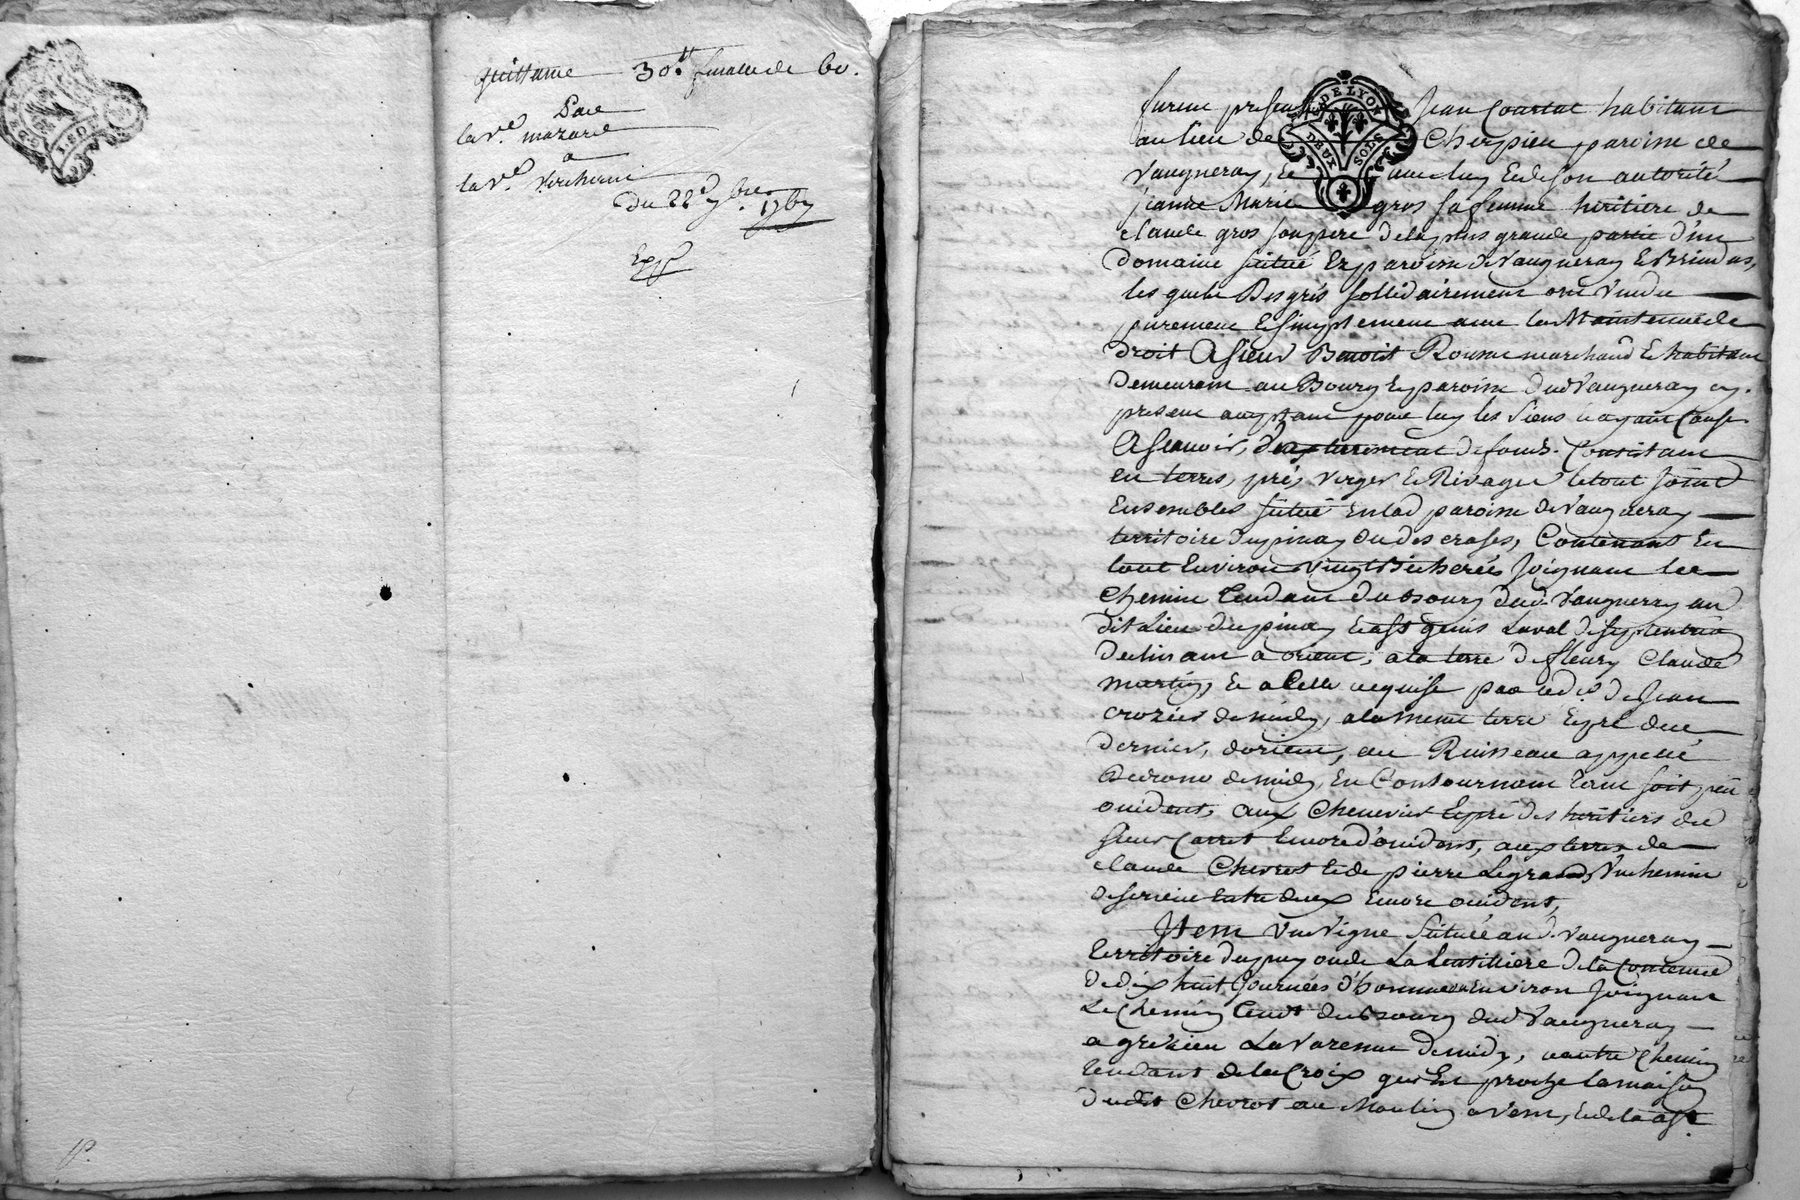 quittance 30.# 
Par
la v.e mazard
a
la v.e
Du 22.e 9bre. 1767
Exp
furent presens Jean Courtat habitant
au lieu de Cherpieu paroisse de
Vaugneray, et avec luy et de son autorité
jeanne Marie gros sa femme heritiere de
claude gros son pere de la plus grande partie d'un
domaine situé ez paroisse de Vaugneray et Brindas,
les quels de grés sollidairement ont vendu
purement et simplement avec la Maintenue de
droit A sieur Benoist marchand et habitant
demeurant au Bourg et paroisse dud Vaugneray cy
present acceptant pour luy les siens et ayant Cause
Ascavoir, de fonds Consistant
en terres, prés, verger et Rivages le tout joint
Ensembles situé en lad paroisse de Vaugneray
territoire du pinay ou des croses, Contenant En
tout Environ vingt Bicherées Joignant le
chemin tendant du Bourg dud Vaugneray au
dit Lieu du pinay Laval de septentrion
declinant a orient, a la terre de fleury Claude
martin, et a Celle acquise par de Jean
crozier de midy, a la meme terre Et pré du
dernier, dorient, au Ruisseau appellé
de midy, En Contournant
occident, aux Chenevier Et pré des heritiers du
sieur Carret Encore d'occident, aux terres de
claude Chevrot et de pierre Legrand, Un chemin
de service Entre deux Encore occident,
Item Une Vigne située aud. Vaugneray
territoire du puy ou de La Lentilliere de la Contenue
de dix huit Journées d'homme Environ Joignant
Le Chemin tend.t du Bourg dud Vaugneray
a grezieu La Varenne de midy, autre Chemin
tendant de la Croix qui Est proche la maison
dudit Chevrot au Moulin a Vent,